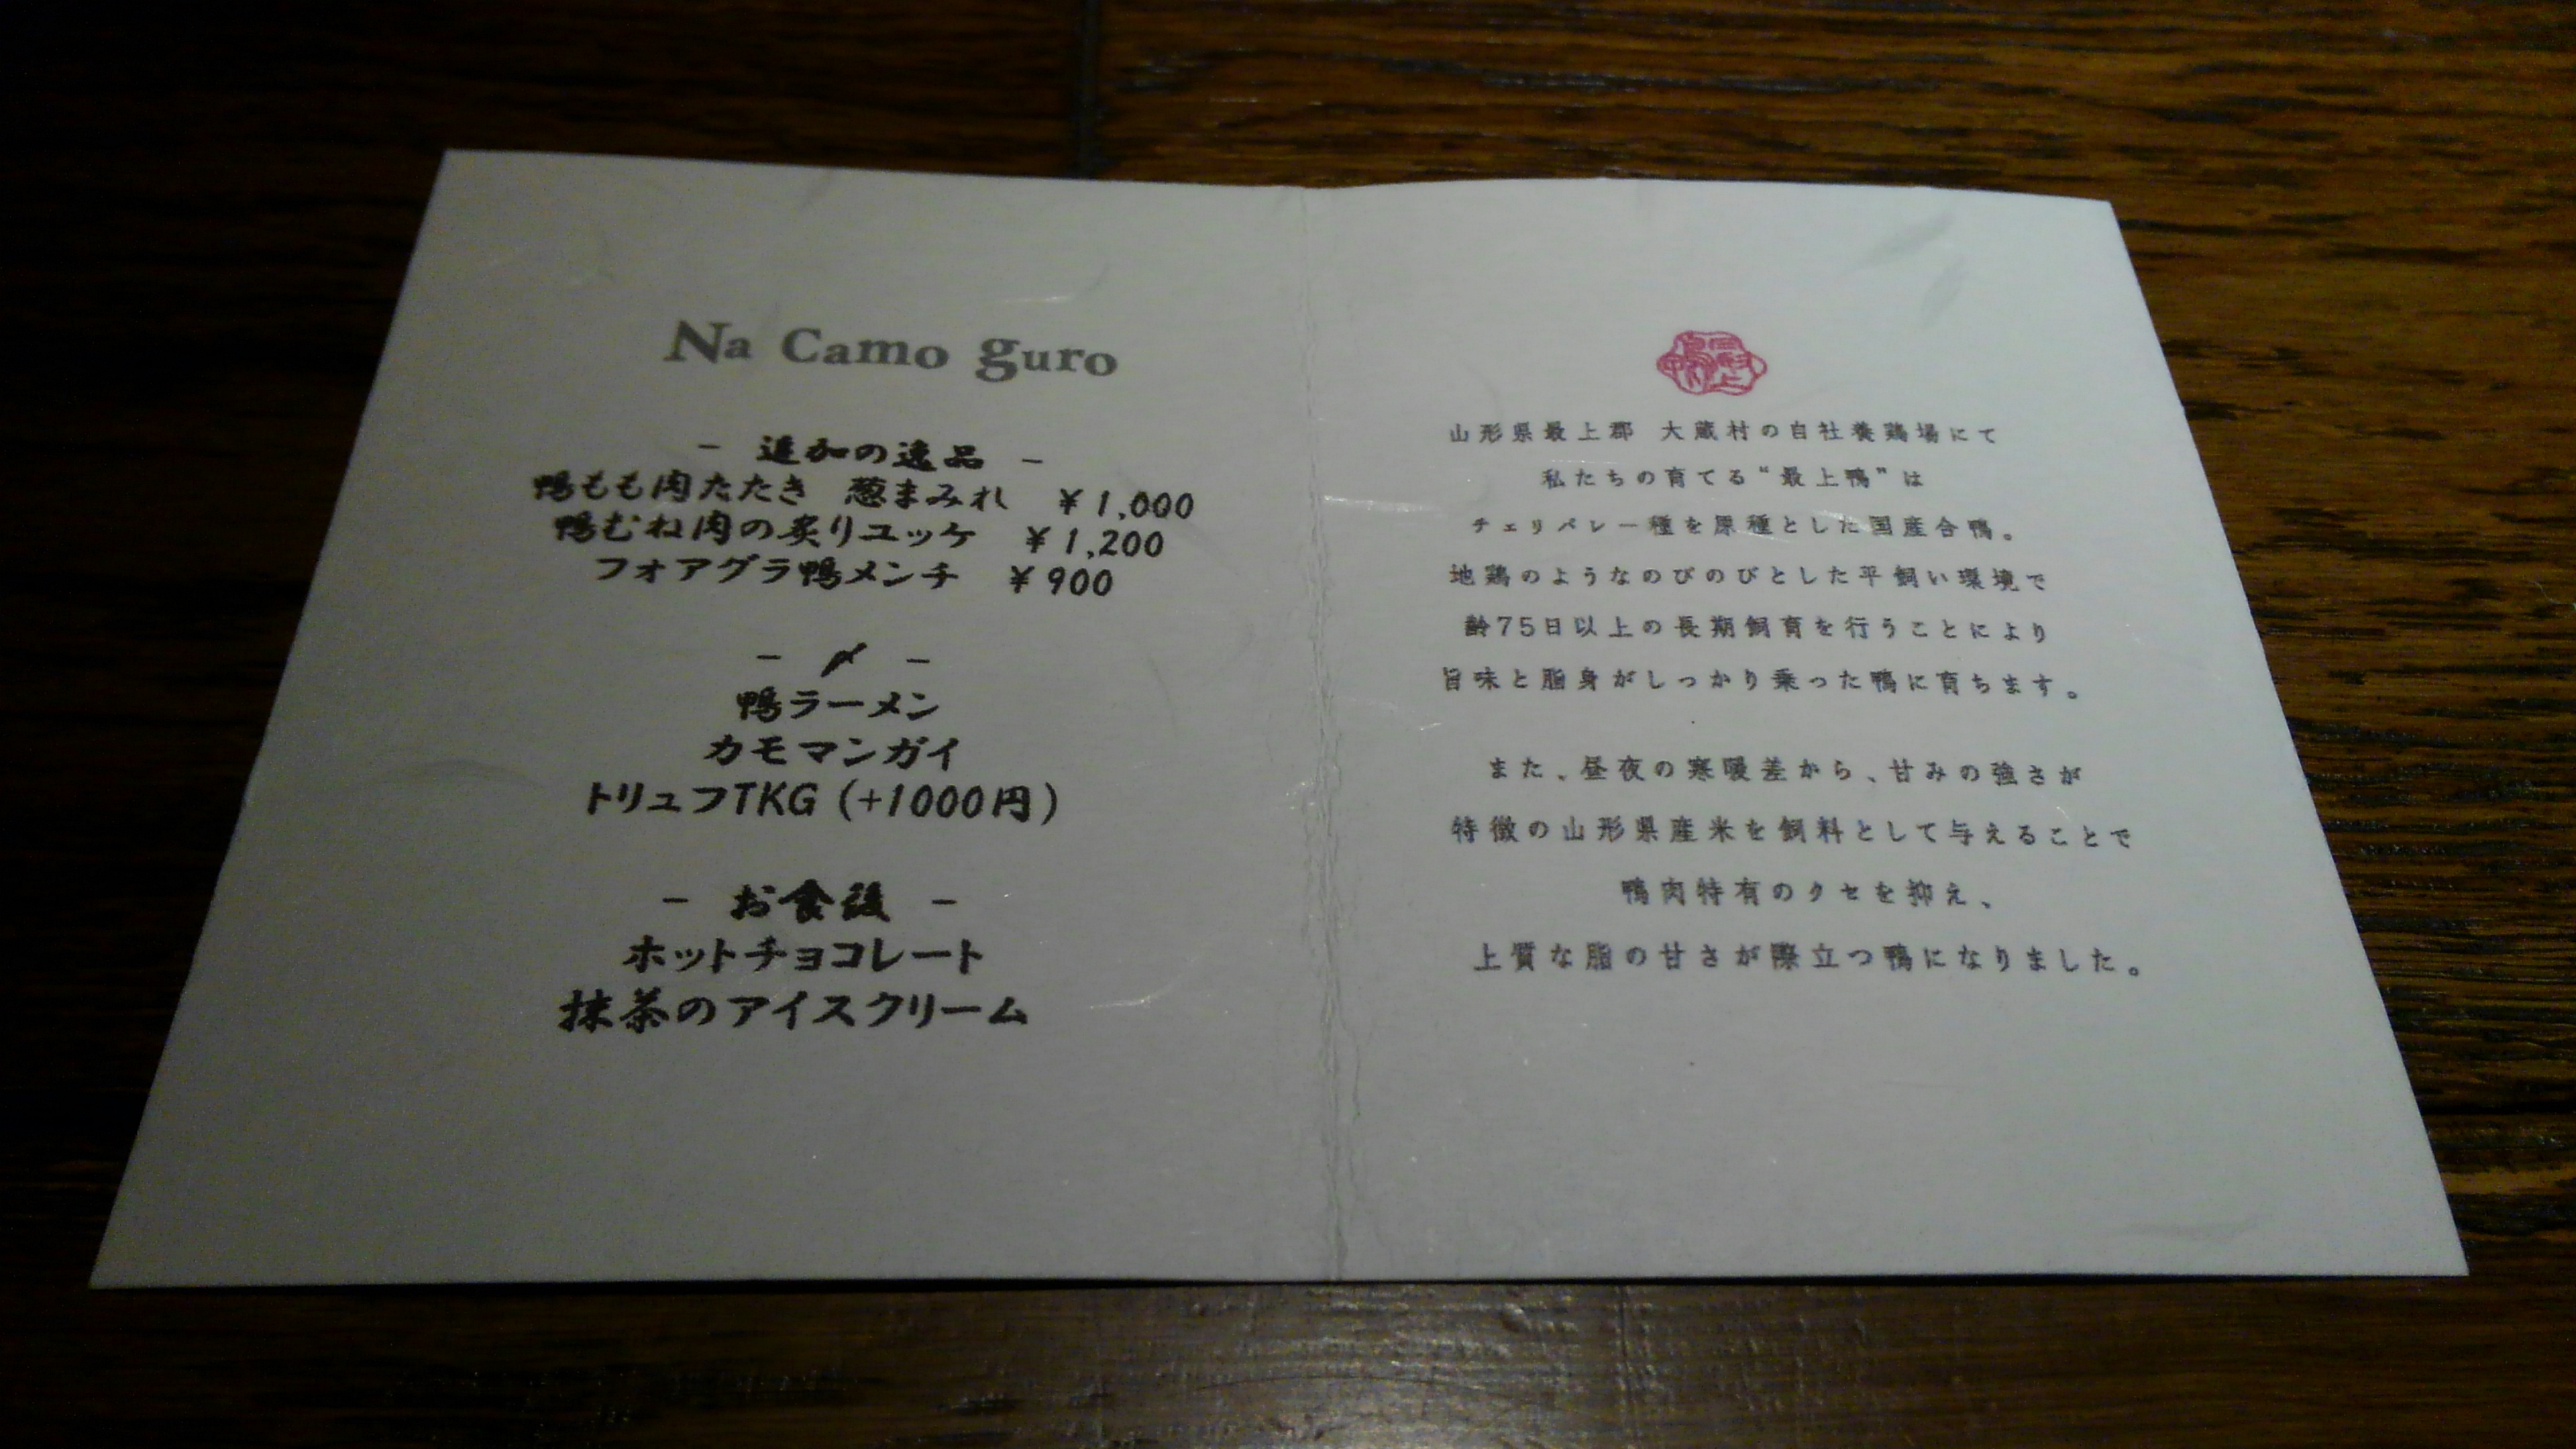 Na Camo guro
- 追加の逸品 -
鴨もも肉たたき 葱まみれ ¥1,000
鴨むね肉の炙りユッケ ¥1,200
フォアグラ鴨メンチ ¥900
- 〆 -
鴨ラーメン
カモマンガイ
トリュフTKG (+1000円)
- お食後 -
ホットチョコレート
抹茶のアイスクリーム
山形県最上郡 大蔵村の自社養鶏場にて
私たちの育てる“最上鴨”は
チェリバレー種を原種とした国産合鴨。
地鶏のようなのびのびとした平飼い環境で
齢75日以上の長期飼育を行うことにより
旨味と脂身がしっかり乗った鴨に育ちます。
また、昼夜の寒暖差から、甘みの強さが
特徴の山形県産米を飼料として与えることで
鴨肉特有のクセを抑え、
上質な脂の甘さが際立つ鴨になりました。